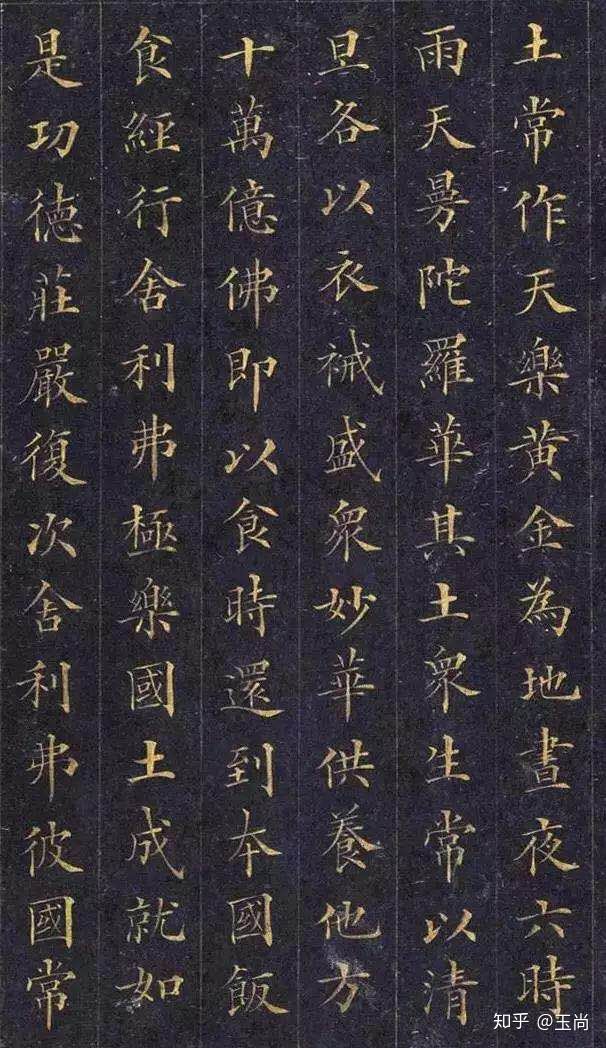 土常作天樂黄金為地晝夜六時
雨天曼陀羅華其土衆生常以清
旦各以衣裓盛衆妙華供養他方
十萬億佛即以食時還到本國飯
食經行舍利弗極樂國土成就如
是功德莊嚴復次舍利弗彼國常
知乎 @玉尚